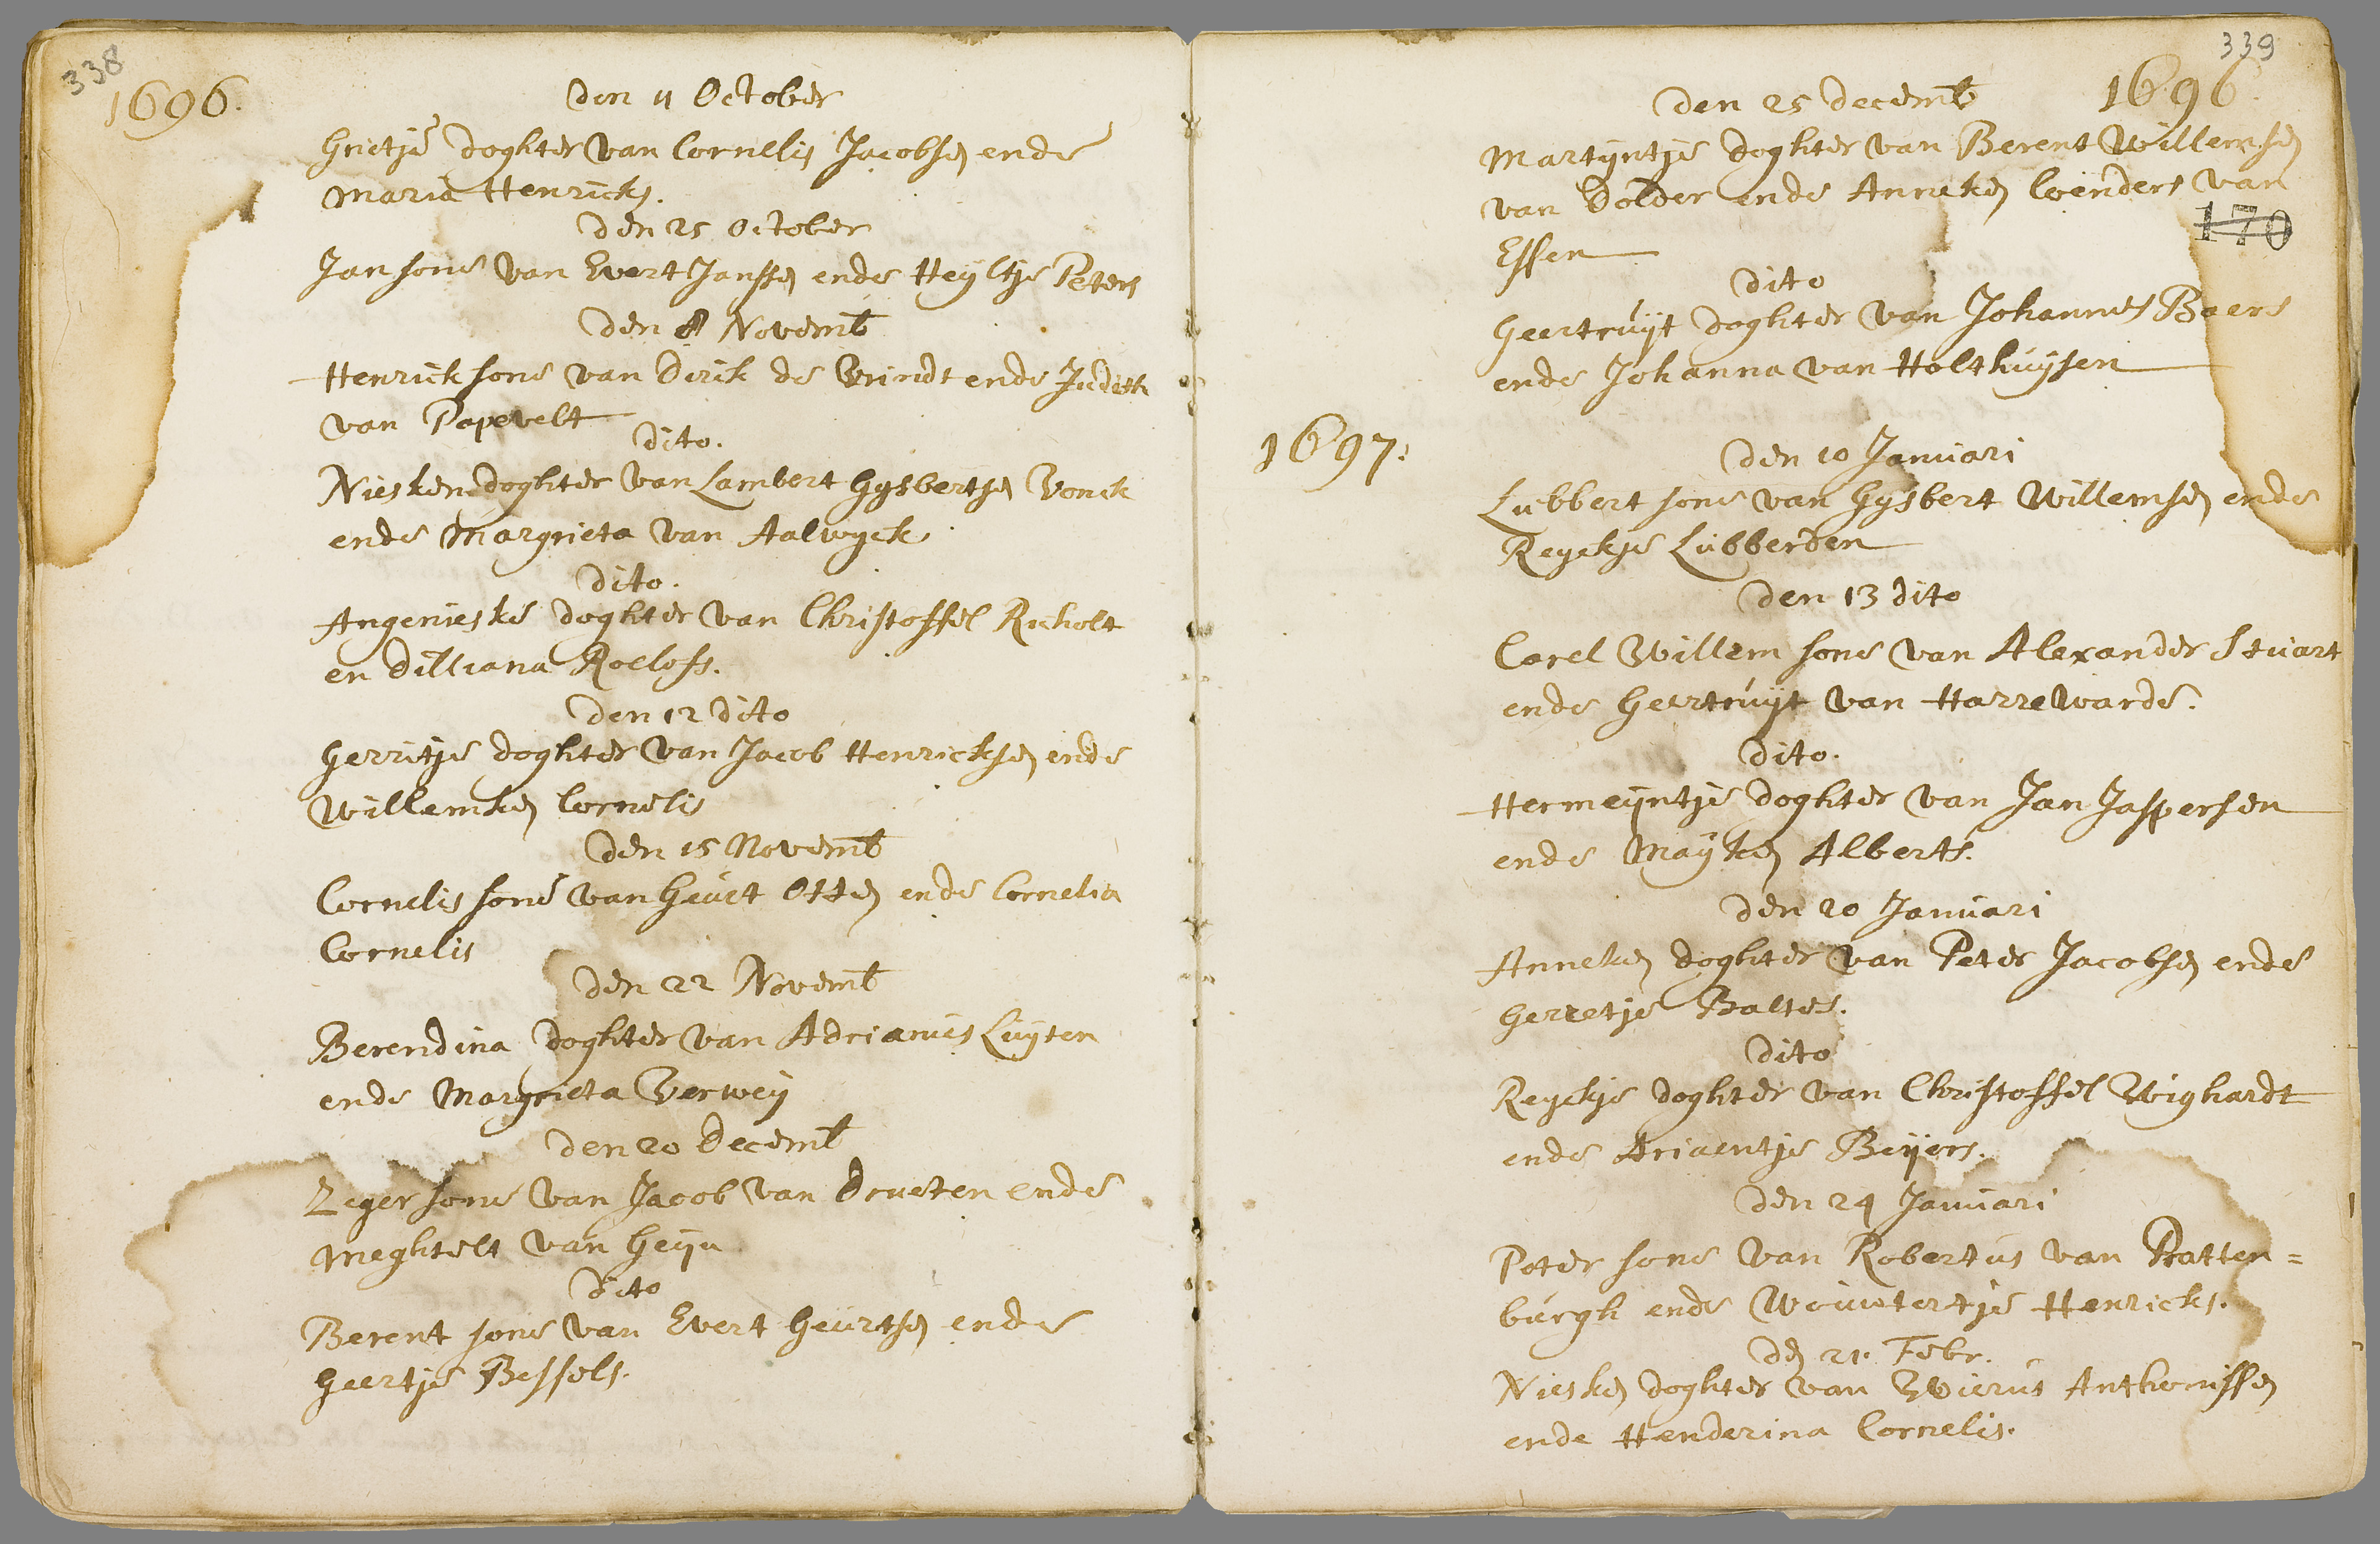 338
1696.
den 11 October
Grietje doghter van Cornelis Jacobsen ende
Maria Henricks.
den 25 October
Jan sone van Evert Janssen ende Heyltje Peters
den 8 Novemb
Henrick sone van Derik de Vrindt ende Judith
van Papevelt
dito.
Niesken doghter van Lambert Gysbertsen Vonck
ende Margrieta van Aalwyck
dito.
Angenieske doghter van Christoffel Richolt
en Dilliana Roelofs.
den 12 dito
Gerritje doghter van Jacob Henricksen ende
Willemken Cornelis
den 15 Novemb
Cornelis sone van Geurt Otten ende Cornelia
Cornelis
den 22 Novemb
Berendina doghter van Adrianus Luyten
ende Margrieta Verweij
den 20 Decemb
Zeger sone van Jacob van Drueten ende
Meghtelt van Geijn
dito
Berent sone van Evert Geurtsen ende
Geertje Bessels.
339
1696.
den 25 decemb
Martijntje doghter van Berent Willemsen
van Dolder ende Anneken Leenders van
Essen
170
dito
Geertruijt doghter van Johannes Baers
ende Johanna van Holthuijsen
1697.
den 10 Januari
Lubbert sone van Gysbert Willemsen ende
Reyckje Lubberden
den 13 dito
Carel Willem sone van Alexander Stuart
ende Geertruijt van Harrewarde.
dito.
Hermeijntje doghter van Jan Jaspersen
ende Mayken Alberts.
den 20 Januari
Anneken doghter van Peter Jacobsen ende
Gerretje Baltes.
dito
Reyckje doghter van Christoffel Wighardt
ende Ariaentje Beijers.
den 24 Januari
Peter sone van Robertus van Ratten=
burgh ende Woutertje Henricks.
den 21. Febr.
Niesken doghter van Wierus Anthonissen
ende Henderina Cornelis.